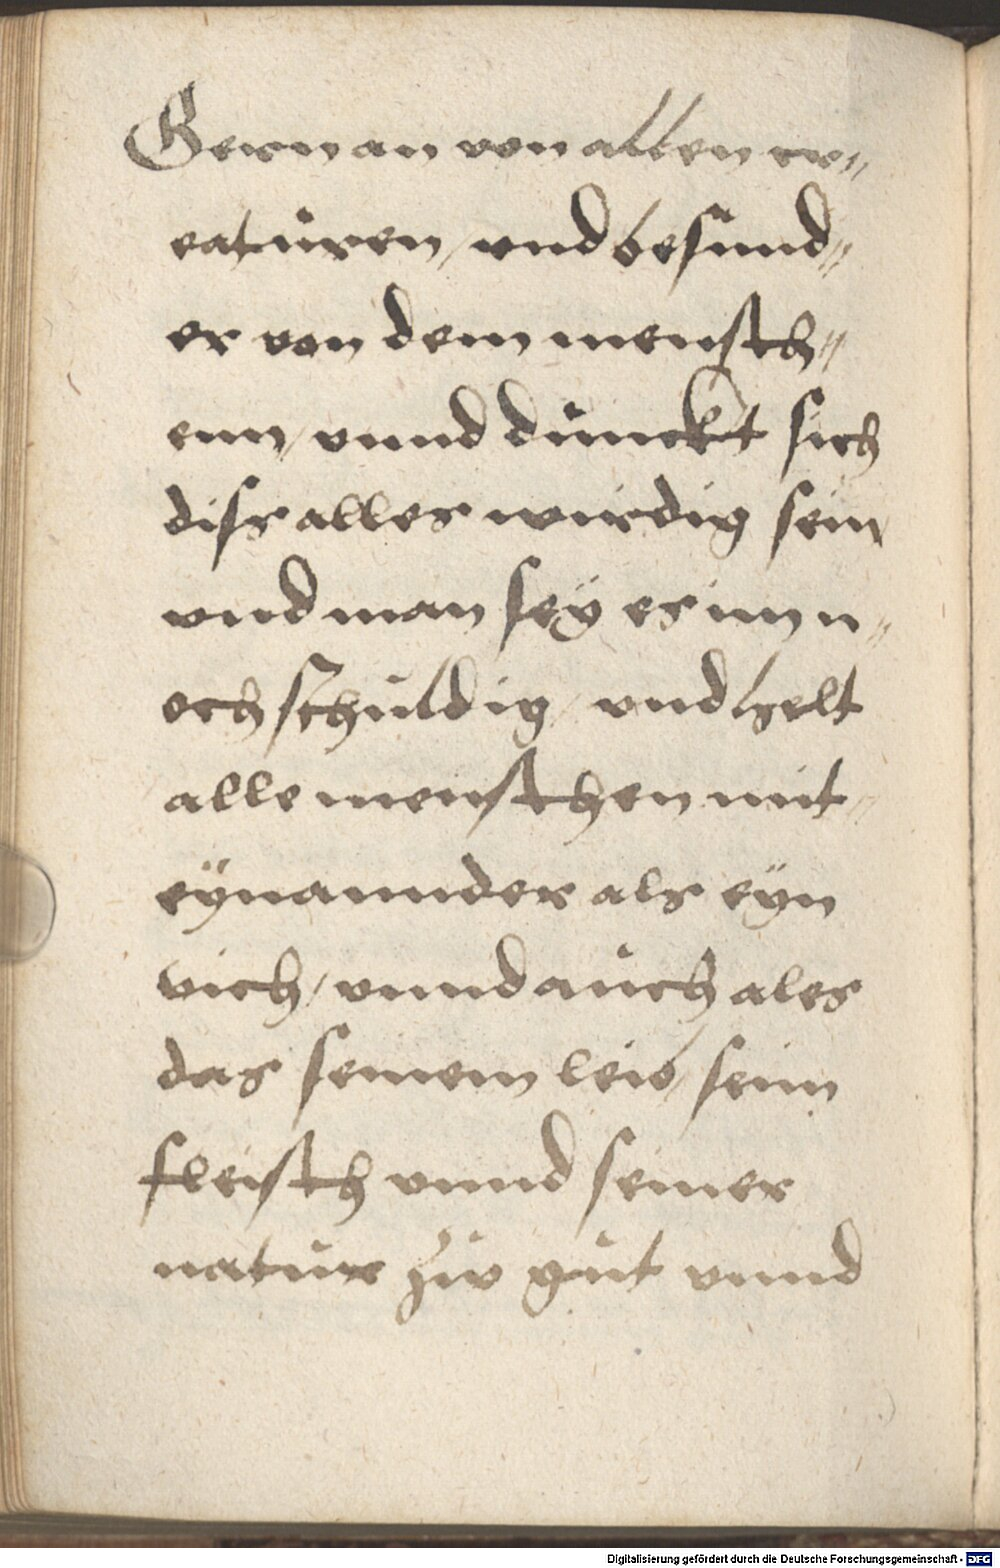 Gern an von allen cr„
eatúren, vnd besund„
er von dem mensch„
enn, vnnd dúnckt sich
diss alles wirdig sein
vnd man seÿ es im n„
och schúldig, vnd helt
alle menschen mit„
eÿnannder als eÿn
vich, vnnd aúch ales
das seinem leib, seim
fleisch vnnd seiner
natúr zú gút vnnd
Digitalisierung gefördert durch die Deutsche Forschungsgemeinschaft - DFG